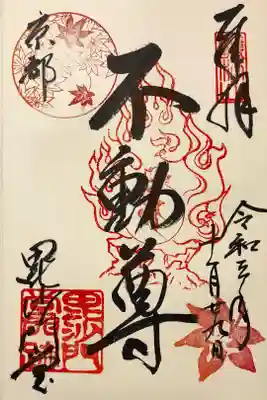 奉拝
令和三年
十一月廿九日
不動尊
京都
毘沙門堂